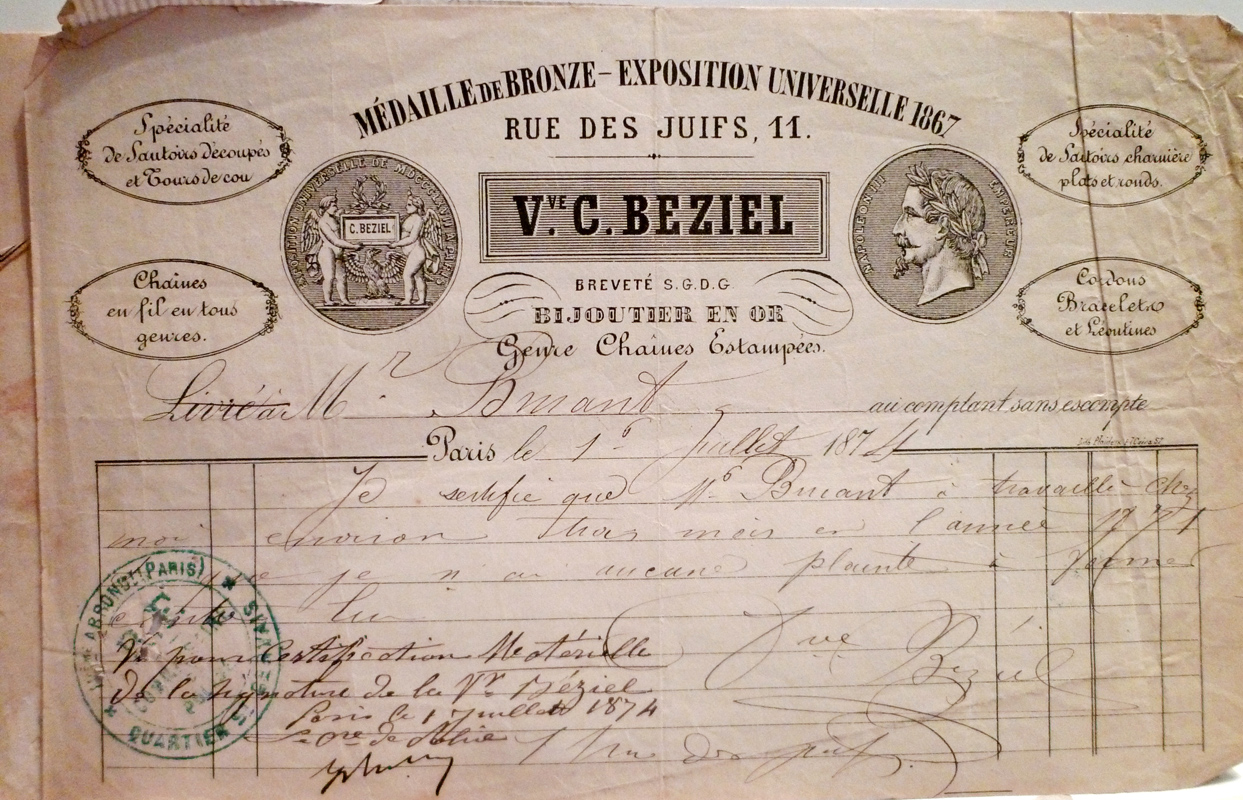 MÉDAILLE DE BRONZE – EXPOSITION UNIVERSELLE 1867
RUE DES JUIFS, 11.
Spécialité
de Sautoirs découpés
et Tours de cou
Spécialité
de Sautoirs charnière
plats et ronds.
C. BEZIEL
Vve C. BEZIEL
NAPOLEON III EMPEREUR
Chaînes
en fil en tous
genres.
BREVETÉ S.G.D.G.
BIJOUTIER EN OR
Genre Chaînes Estampées.
Cordons
Bracelets
et Léontines
Livré à Mr Bruant au comptant sans escompte
Paris le 1er Juillet 1874
Je sertifie que Mr Bruant à travaillé chez
moi environ trois mois en l'année 1871
je n ai aucune plainte à former
contre lui
Vve Béziel
Vu pour Certification Matérielle
de la signature de la Vve Béziel
Paris le 1 Juillet 1874
11 rue des juifs
ARRONDT (PARIS)
QUARTIER ST GERVAIS